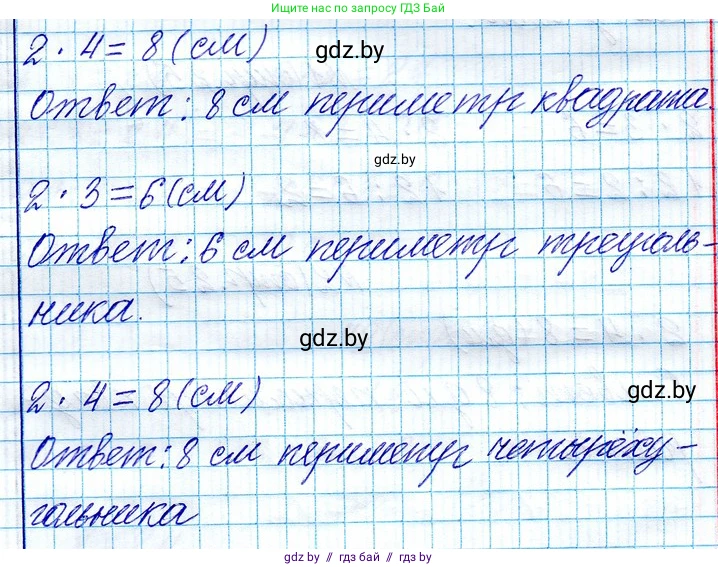 Ищите нас по запросу ГДЗ Бай
2 · 4 = 8 (см)
gdz.by
Ответ: 8 см периметр квадрата.
gdz.by
2 · 3 = 6 (см)
Ответ: 6 см периметр треуголь-
ника.
gdz.by
2 · 4 = 8 (см)
gdz.by
Ответ: 8 см периметр четырёху-
гольника
gdz.by // гдз бай // гдз.by